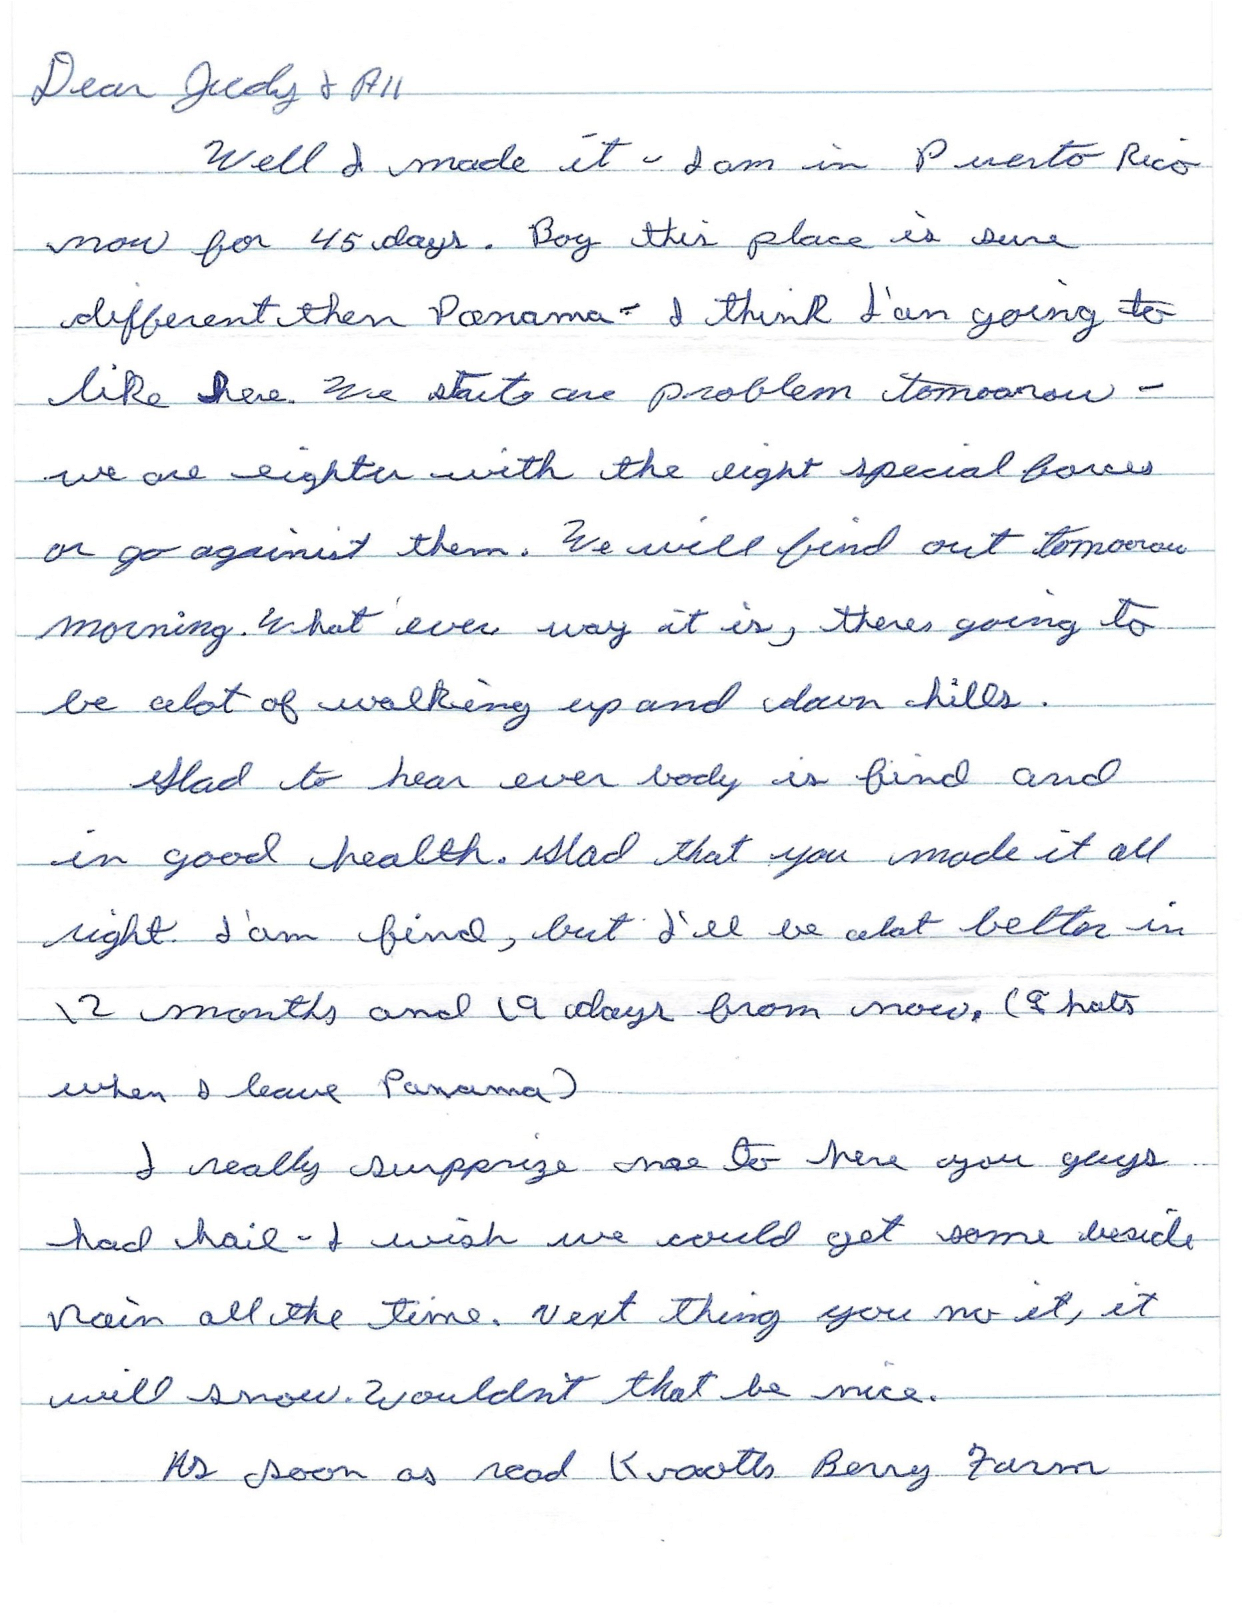 Dear Judy & All
Well I made it - I am in Puerto Rico
now for 45 days. Boy this place is sure
different then Panama - I think I'am going to
like here. We starts are problem tomoorow -
we are eighter with the eight special forces
or go againist them. We will find out tomoorow
morning. What ever way it is, theres going to
be alot of walking up and down hills.
Glad to hear ever body is find and
in good health. Glad that you made it all
right. I'am find, but I'll be alot better in
12 months and 19 days from now. (Thats
when I leave Panama)
I really surpprize me to here you guys
had hail - I wish we could get some beside
rain all the time. Next thing you no it, it
will snow. Wouldn't that be nice.
As soon as read Berry Farm